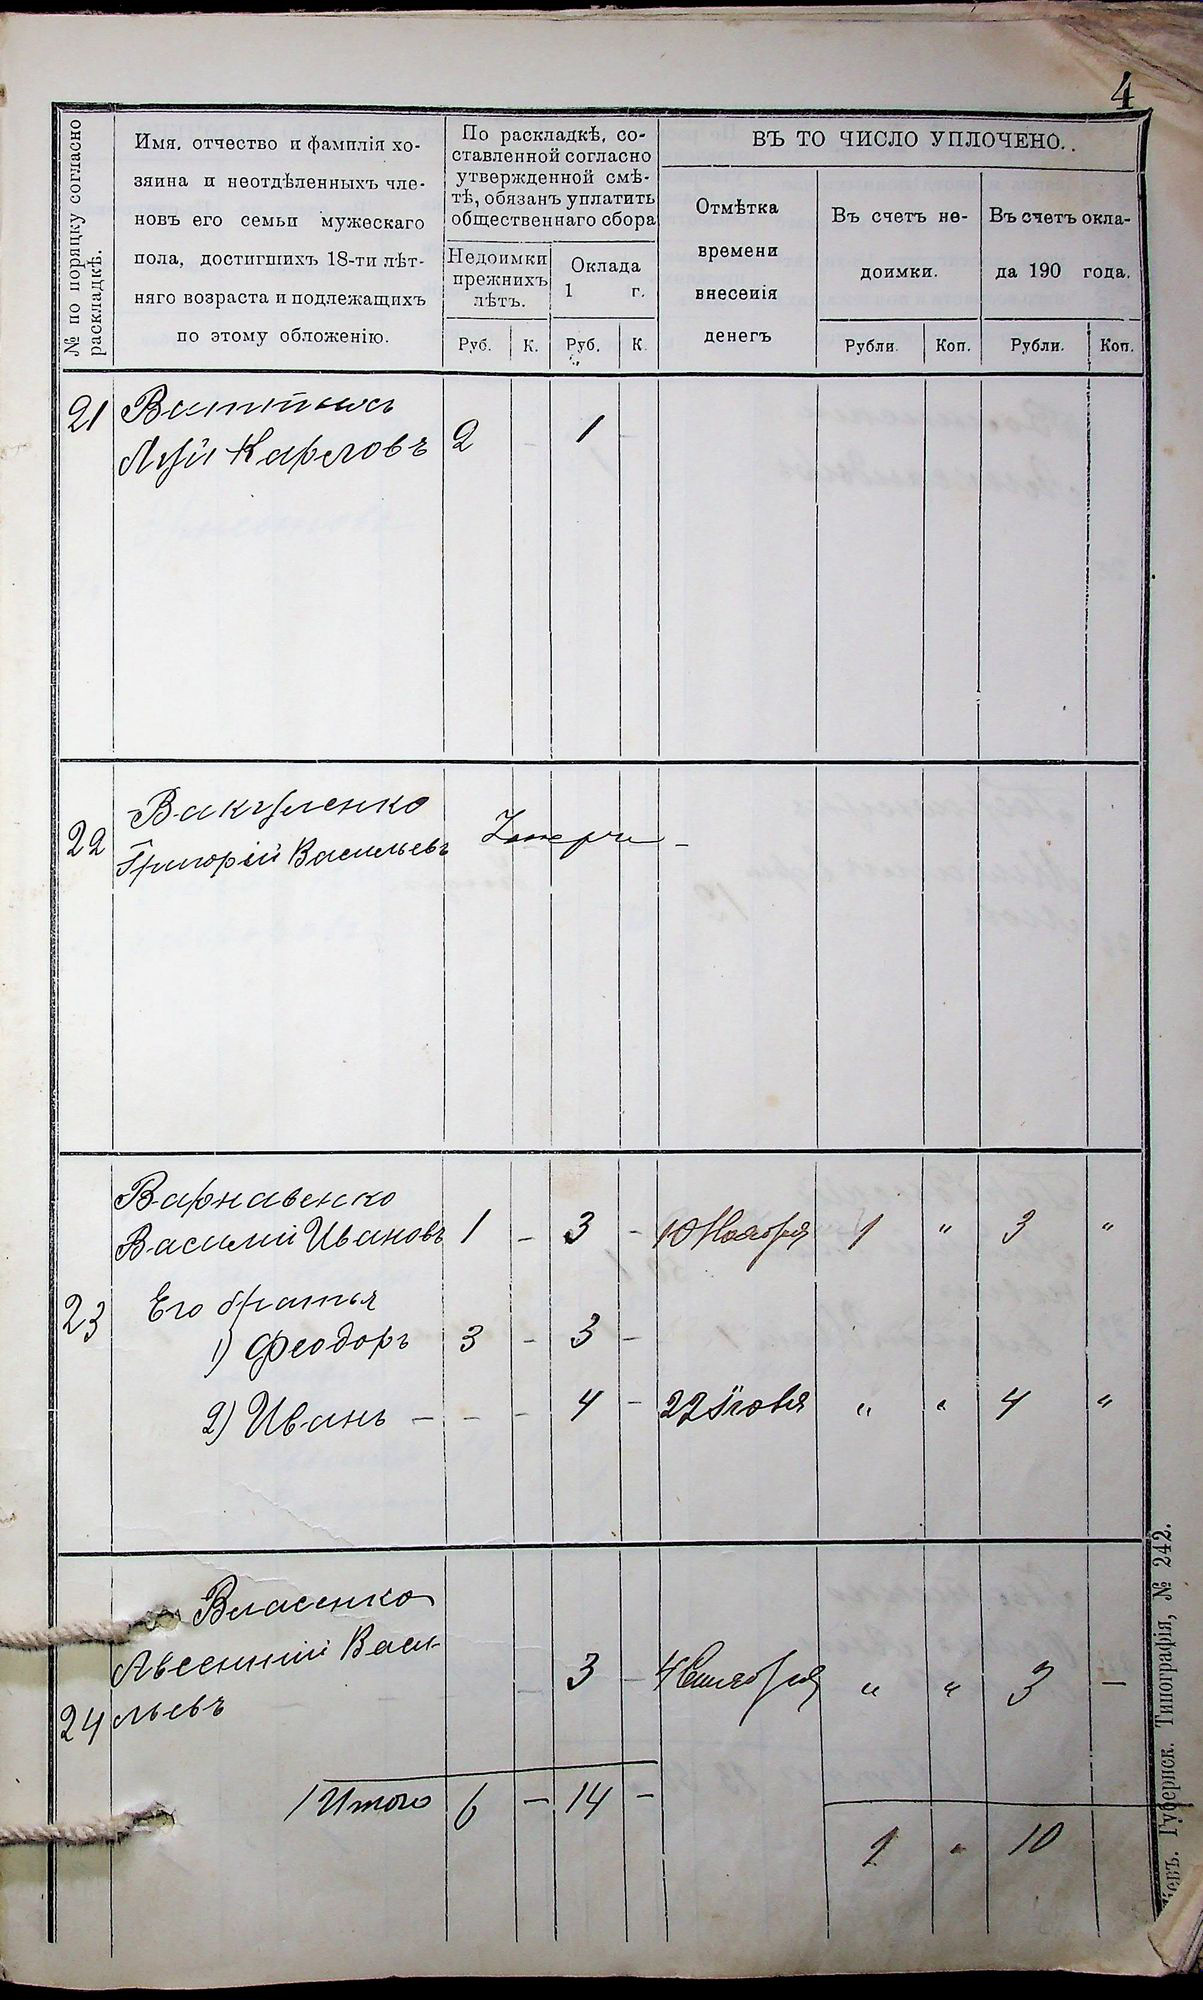 4
№ по порядку согласно
раскладкѣ.
Имя, отчество и фамилія хо-
зяина и неотдѣленныхъ чле-
новъ его семьи мужескаго
пола, достигшихъ 18-ти лѣт-
няго возраста и подлежащихъ
по этому обложенію.
По раскладкѣ, со-
ставленной согласно
утвержденной смѣ-
тѣ, обязанъ уплатить
общественнаго сбора
Недоимки
прежнихъ
лѣтъ.
Оклада
1 г.
Руб. К. Руб. К.
ВЪ ТО ЧИСЛО УПЛОЧЕНО.
Отмѣтка
времени
внесенія
денегъ
Въ счетъ не-
доимки.
Въ счетъ окла-
да 190 года.
Рубли. Коп. Рубли. Коп.
21
Луй Карловъ 2 - 1 -
22 Вакуленко
Григорій Васильевъ
Варнавенко
Василій Ивановъ 1 - 3 - 10 Ноября 1 " 3 "
23 Его братья
1) Феодоръ 3 - 3 -
2) Иванъ - - - 4 - 22 Іюля " " 4 "
Власенко
Авсентій Васи-
24 льевъ 3 - 4 " " 3 -
Итого 6 - 14 -
1 " 10
Кіевъ. Губернск. Типографія, № 242.